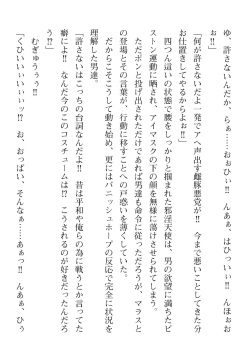 ゆ、許さないんだか、らぁ……おぉひぃ‼　んあぁ、はひっいぃ‼　んほぉお
ぉ‼」
「何が許さないだよ一発でアへ声出す雌豚悪党が‼　今まで悪いことしてきた分
お仕置きしてやるからよぉ‼」
　四つん這いの状態で腰をしっかりと掴まれた邪淫天使は、男の欲望に満ちたピ
ストン運動に晒され、アイマスクの下の顔を無様に蕩けさせられてしまう。
　ただポンと投げ出されただけであれば男達も命令に従っただろうが、マラスと
の登場とその言葉が、行動に移すことへの戸惑いを薄くしていた。
　だからこそこうして動き始め、更にはバニッシュホープの反応で完全に状況を
理解した男達。
「許さないはこっちの台詞なんだよ‼　昔は平和や俺らの為に戦うとか言ってた
癖によ‼　なんだ今のこのコスチュームは⁉　こうされるのが好きだったんだろ
う⁉」
　むぎゅうぅぅ‼
「くひいいぃいぃッ⁉　お、おっぱい、そんなぁ……あぁっ‼　んあぁ、ひぅ